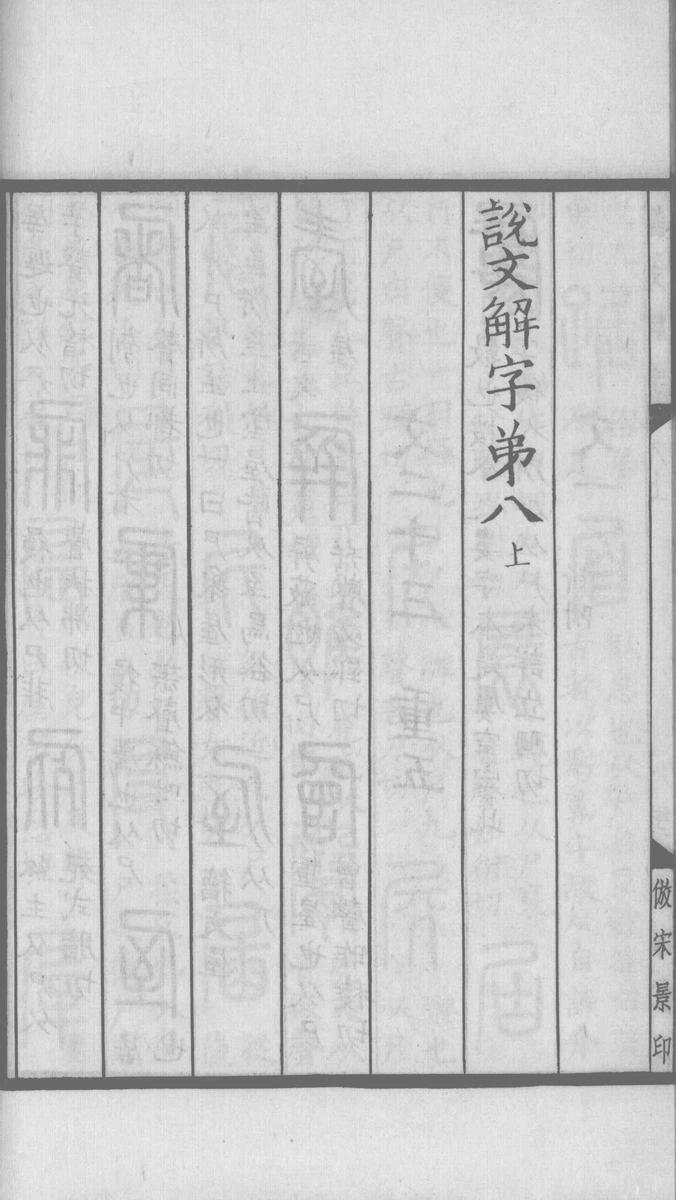 說文解字弟八上
倣宋景印